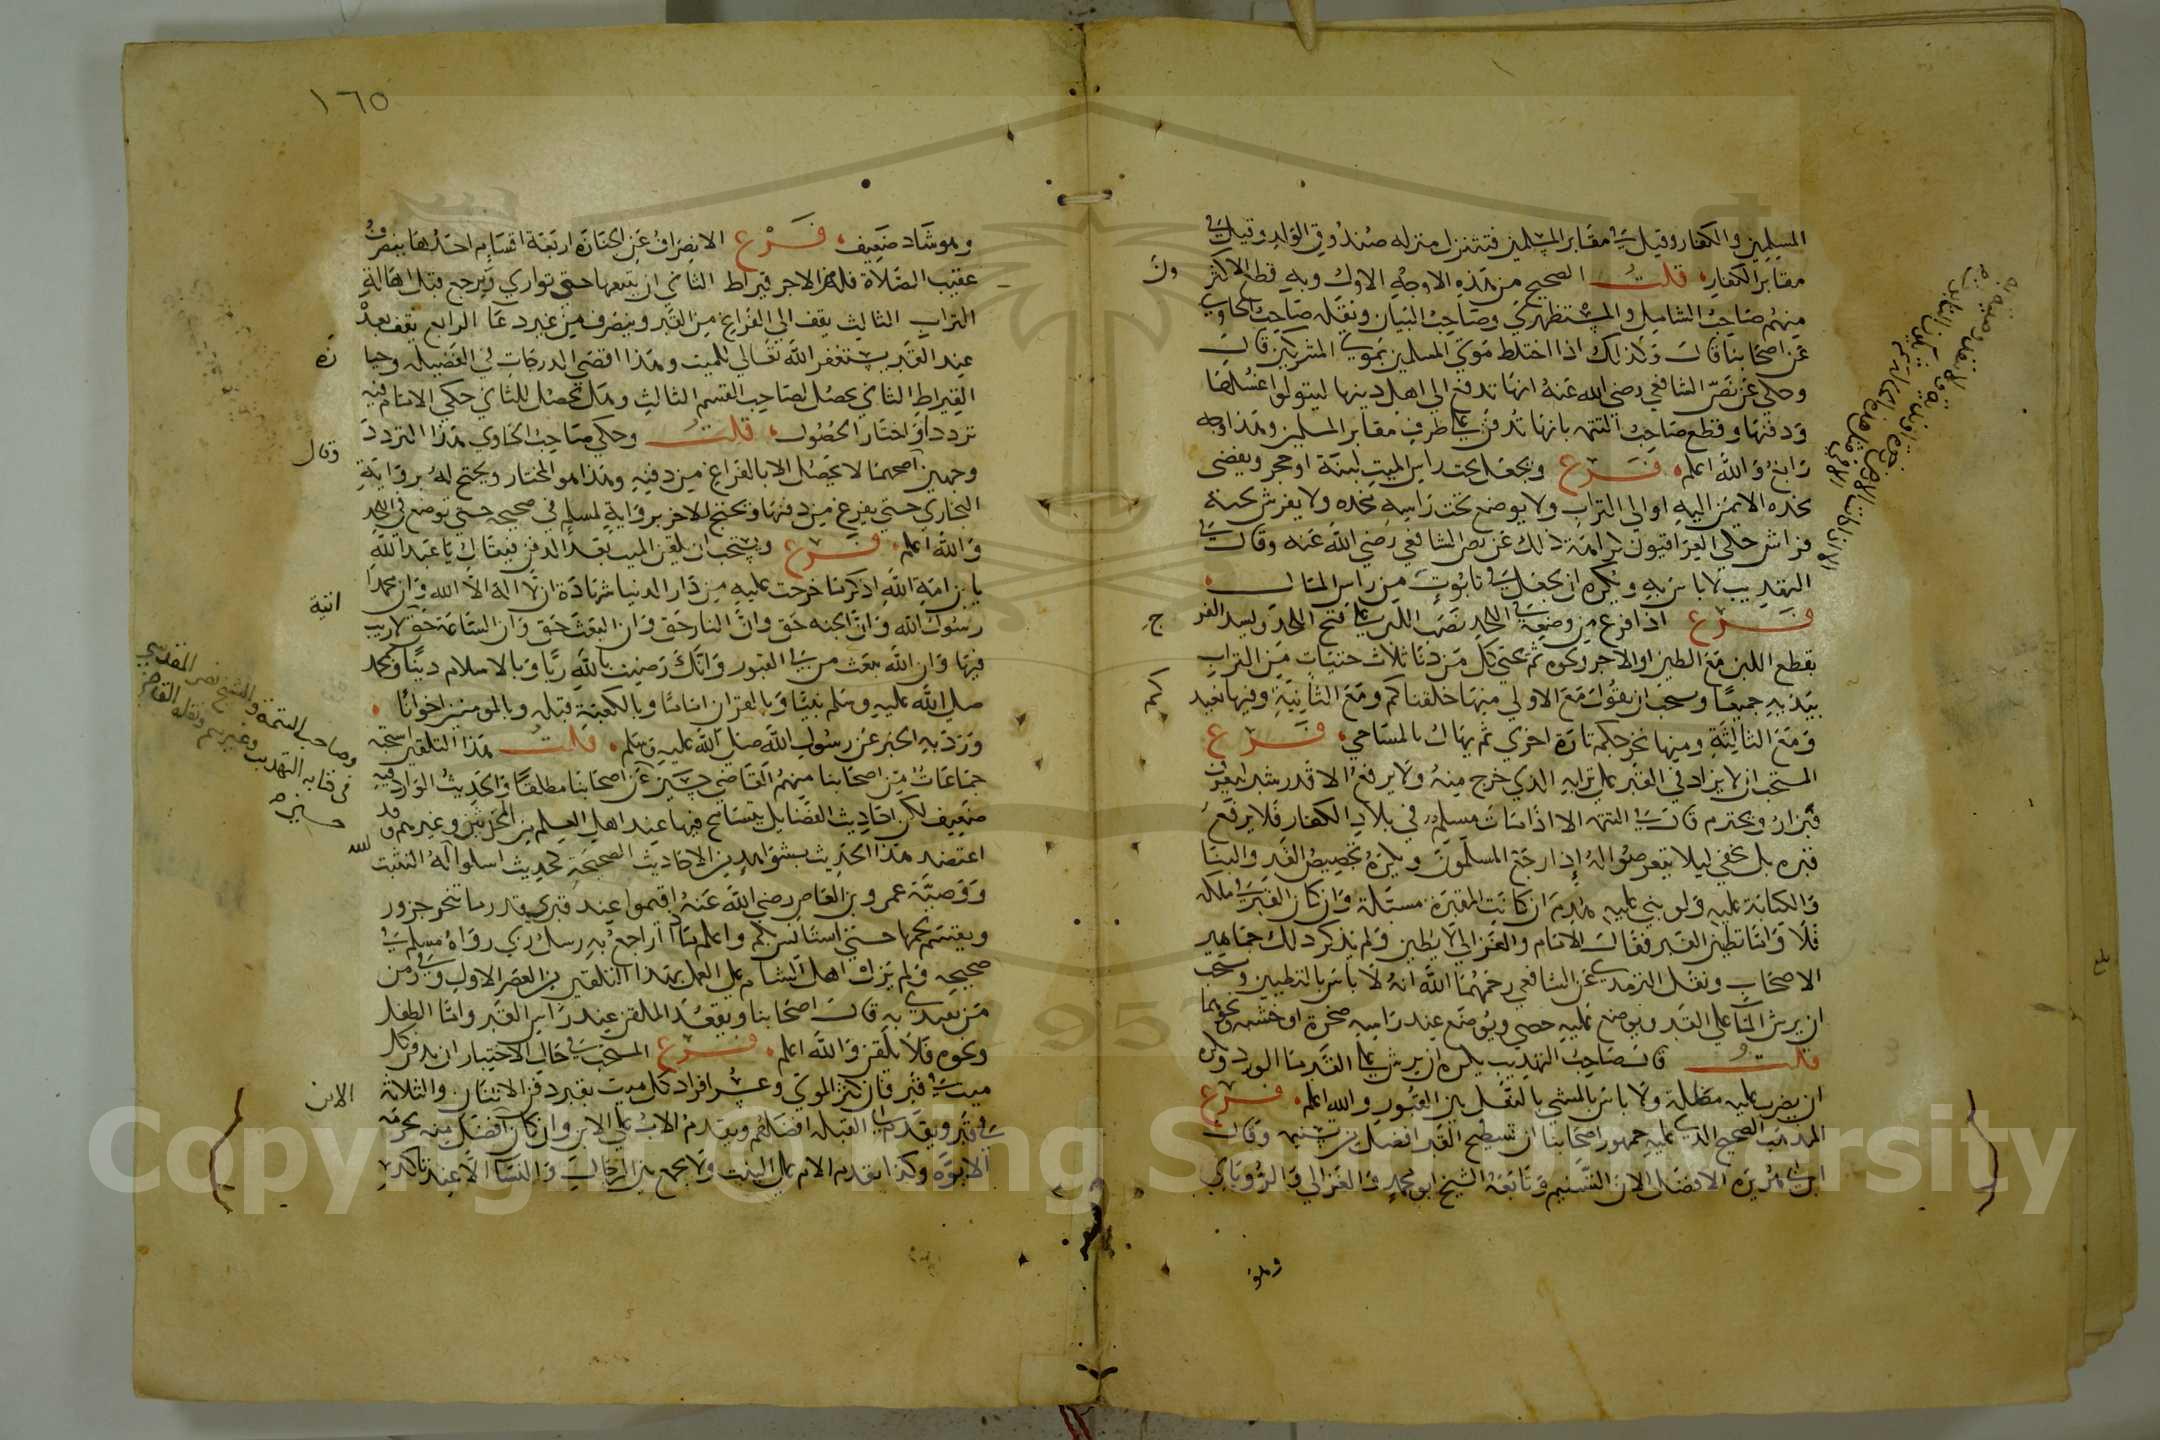 المسلمين والكفار وقيل في مقابر المسلمين فتتنزل منزله صندوق الولد وقيل في
مقابر الكفار قلت الصحيح من هذه الاوجه الاول وبه قطع الاكثرون
منهم صاحب الشامل والمستظهري وصاحب البيان ونقله صاحب الحاوي
عن اصحابنا قال وكذلك اذا اختلط موتي المسلمين بموتي المشركين قال
وحكي عن نص الشافعي رضي الله عنه انها تدفع الي اهل دينها ليتولوا غسلها
ودفنها وقطع صاحب التتمه بانها تدفن علي طرف مقابر المسلمين وهذا وجه
رابع والله اعلم فرع ويجعل تحت راس الميت لبنة او حجر ويفضي
بخده الايمن اليه او الي التراب ولا يوضع تحت راسه مخده ولا يفرش تحته
فراش حكي العراقيون كراهة ذلك عن نص الشافعي رضي الله عنه وقال في
التهذيب لا باس به ويكره ان يجعل في تابوت من راس المال
فرع اذا فرغ من وضعه في اللحد نصب اللبن علي فتح اللحد ويسد الفرج
بقطع اللبن مع الطين او الاجر ونحوه ثم يحثي كل من دنا ثلاث حثيات من التراب
بيديه جميعا ويستحب ان يقول مع الاولي منها خلقناكم ومع الثانية وفيها نعيدكم
ومع الثالثة ومنها نخرجكم تارة اخري ثم يهال بالمساحي فرع
المستحب ان لا يزاد في القبر علي ترابه الذي خرج منه ولا يرفع الا قدر شبر ليعرف
فيزار ويحترم قال في التتمه الا اذا مات مسلم في بلاد الكفار فلا يرفع
قبره بل يخفي ليلا يتعرضوا له اذا رجع المسلمون ويكره تجصيص القبر والبنا
والكتابة عليه ولو بني عليه هدم ان كانت المقبرة مسبلة وان كان القبر في ملكه
فلا واما تطين القبر فقال الامام والغزالي لا يطين ولم يذكر ذلك جماهير
الاصحاب ونقل الترمذي عن الشافعي رحمهما الله انه لا باس بالتطيين ويستحب
ان يرش الما علي القبر ويوضع عليه حصي ويوضع عند راسه صخرة او خشبه ونحوهما
قلت قال صاحب التهذيب يكره ان يرش علي القبر ما الورد وكره
ان يضرب عليه مظلة ولا باس بالمشي بالنعل بين القبور والله اعلم فرع
المذهب الصحيح الذي عليه جمهور اصحابنا ان تسطيح القبر افضل من تسنيمه وقال
ابن ابي هريرة الافضل الان التسنيم وتابعه الشيخ ابو محمد والغزالي والروياني
وهو
١٦٥
وهو شاذ ضعيف فرع الانصراف عن الجنازة اربعة اقسام احدها ينصرف
عقيب الصلاة فله من الاجر قيراط الثاني ان يتبعها حتي تواري ويرجع قبل اهالة
التراب الثالث يقف الي الفراغ من القبر وينصرف من غير دعا الرابع يقف بعده
عند القبر يستغفر الله تعالي للميت وهذا اقصي الدرجات في الفضيله وحيازة
القيراط الثاني يحصل لصاحب القسم الثالث وهل يحصل للثاني حكي الامام فيه
ترددا واختار الحصول قلت وحكي صاحب الحاوي هذا التردد
وجهين وقال اصحهما لا يحصل الا بالفراغ من دفنه وهذا هو المختار ويحتج له برواية
البخاري حتي يفرغ من دفنها ويحتج للاخر برواية لمسلم في صحيحه حتي توضع في اللحد
والله اعلم فرع ويستحب ان يلقن الميت بعد الدفن فيقال يا عبد الله
يا بن امة الله اذكر ما خرجت عليه من دار الدنيا شهادة ان لا اله الا الله وان محمدا
رسول الله وان الجنه حق وان النار حق وان البعث حق وان الساعة اتية لا ريب
فيها وان الله يبعث من في القبور وانك رضيت بالله ربا وبالاسلام دينا وبمحمد
صلي الله عليه وسلم نبيا وبالقران اماما وبالكعبة قبله وبالمومنين اخوانا
ورد به الخبر عن رسول الله صلي الله عليه وسلم قلت هذا التلقين استحبه
جماعات من اصحابنا منهم القاضي حسين عن اصحابنا مطلقا والحديث الوارد فيه
وصاحب التتمة والشيخ نصر المقدسي
في كتابه التهذيب وغيرهم ونقله القاضي
حسين
ضعيف لكن احاديث الفضايل يتسامح فيها عند اهل العلم من المحدثين وغيرهم وقد
اعتضد هذا الحديث بشواهد من الاحاديث الصحيحة كحديث اسلوا الله له التثبت
ووصية عمرو بن العاص رضي الله عنه اقيموا عند قبري قدر ما تنحر جزور
ويقسم لحمها حتي استانس بكم واعلم ماذا اراجع به رسل ربي رواه مسلم في
صحيحه ولم يزل اهل الشام علي العمل بهذا التلقين من العصر الاول وفي زمن
من يقتدي به قال اصحابنا ويقعد الملقن عند راس القبر واما الطفل
ونحوه فلا يلقن والله اعلم فرع المستحب في حال الاختيار ان يدفن كل
ميت في قبر فان كثر الموتي وعسر افراد كل ميت بقبر دفن الاثنان والثلاثة
في قبر ويقدم الي القبله افضلهم ويقدم الاب علي الابن وان كان الابن افضل منه لحرمة
الابوة وكذا تقدم الام علي البنت ولا يجمع بين الرجال والنسا الا عند تاكد
Copyright © King Saud University
1957